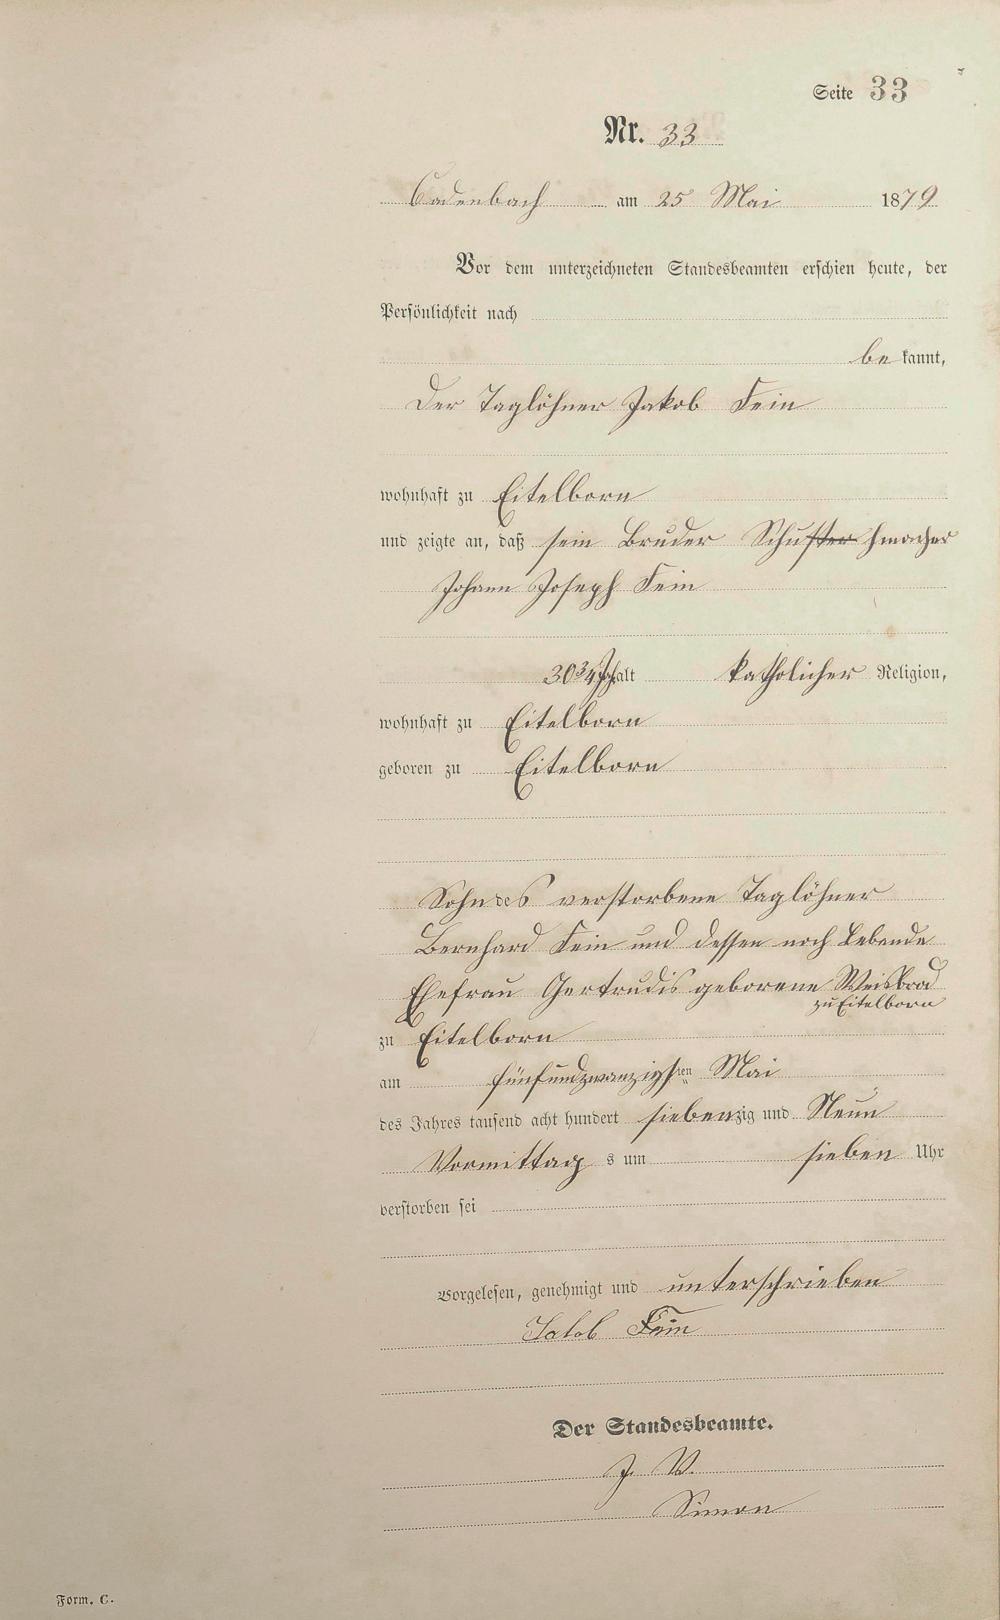 Seite 33
Nr. 33
Cadenbach am 25 Mai 1879
Vor dem unterzeichneten Standesbeamten erschien heute, der
Persönlichkeit nach
be kannt,
der Taglöhner Jakob Fein
wohnhaft zu Eitelborn
und zeigte an, daß sein Bruder Schuster hmacher
Johann Joseph Fein
30 3/4 Jh alt katholicher Religion,
wohnhaft zu Eitelborn
geboren zu Eitelborn
Sohn des verstorbene Taglöhner
Bernhard Fein und dessen noch lebende
Ehefrau Gertrudis geborene Weisbrod
zu Eitelborn
zu Eitelborn
am fünfundzwanzigsten Mai
des Jahres tausend acht hundert siebenzig und Neun
Vormittag s um sieben Uhr
verstorben sei
Vorgelesen, genehmigt und unterschrieben
Jakob Fein
Der Standesbeamte.
J. V.
Simon
Form. C.